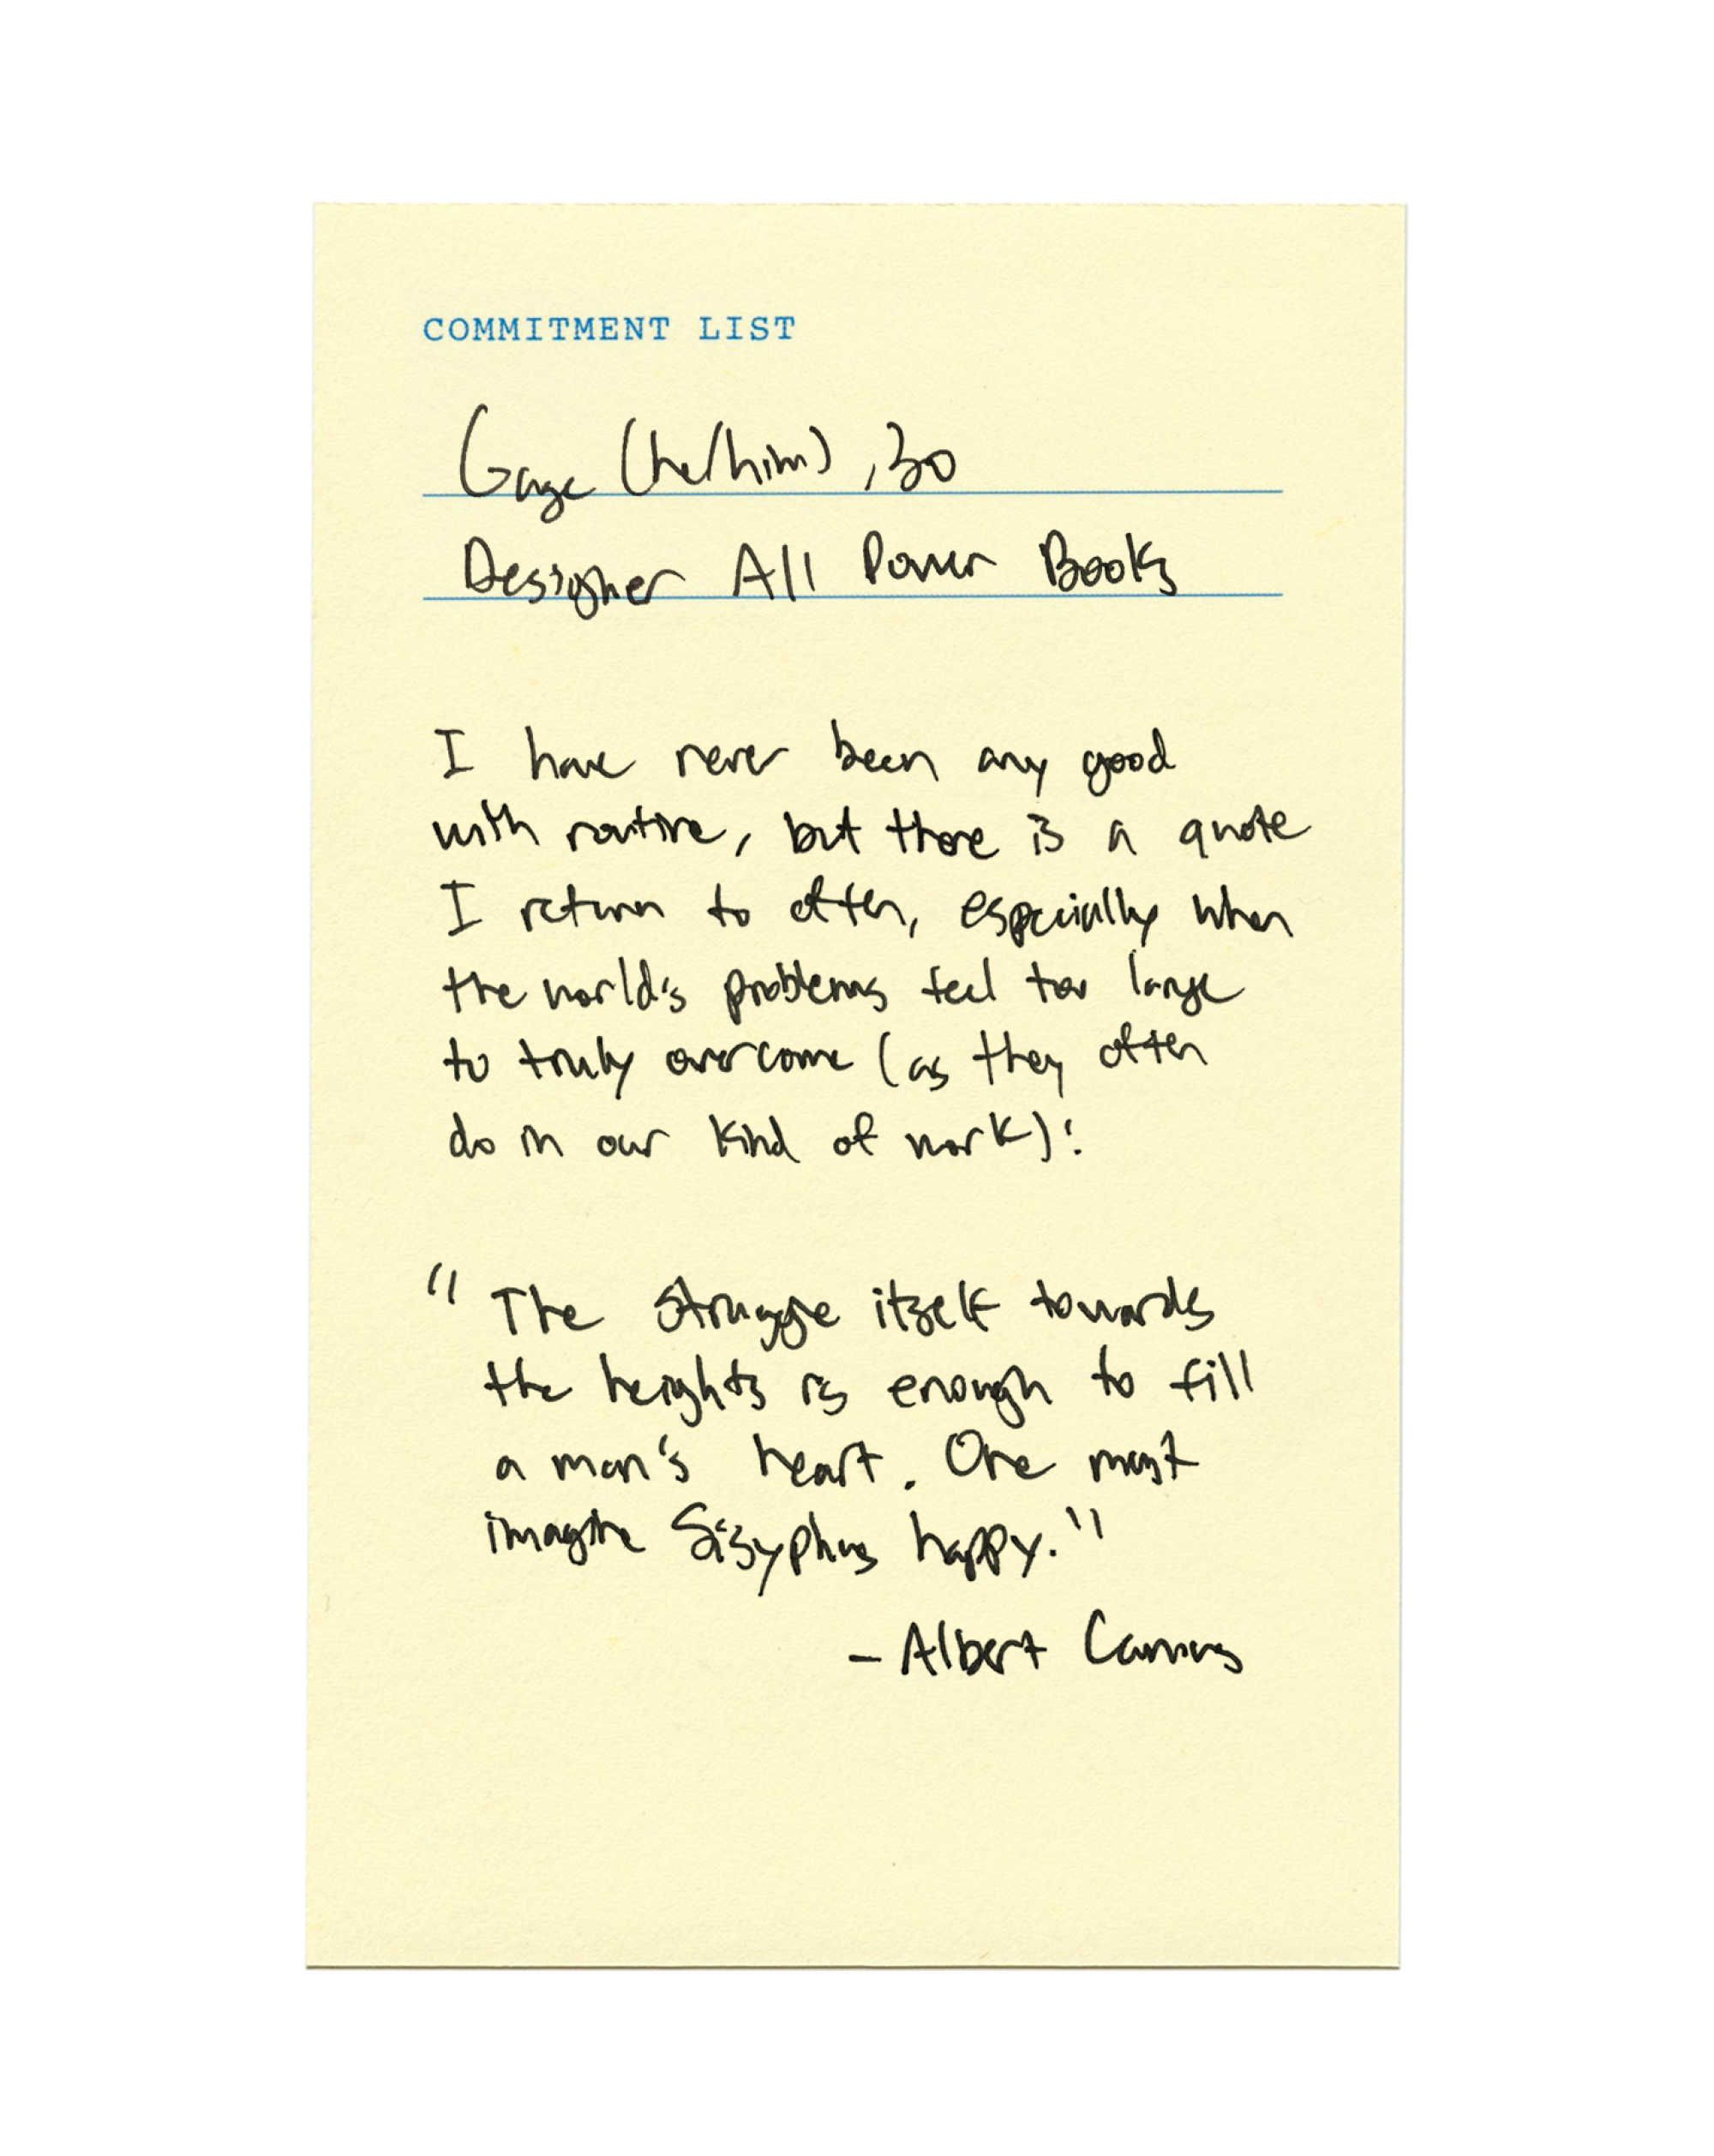 COMMITMENT LIST
Gage (he/him), 30
Designer All Power Books
I have never been any good
with routine, but there is a quote
I return to often, especially when
the world's problems feel too large
to truly overcome (as they often
do in our kind of work):
"The struggle itself towards
the heights is enough to fill
a man's heart. One must
imagine Sisyphus happy."
- Albert Camus